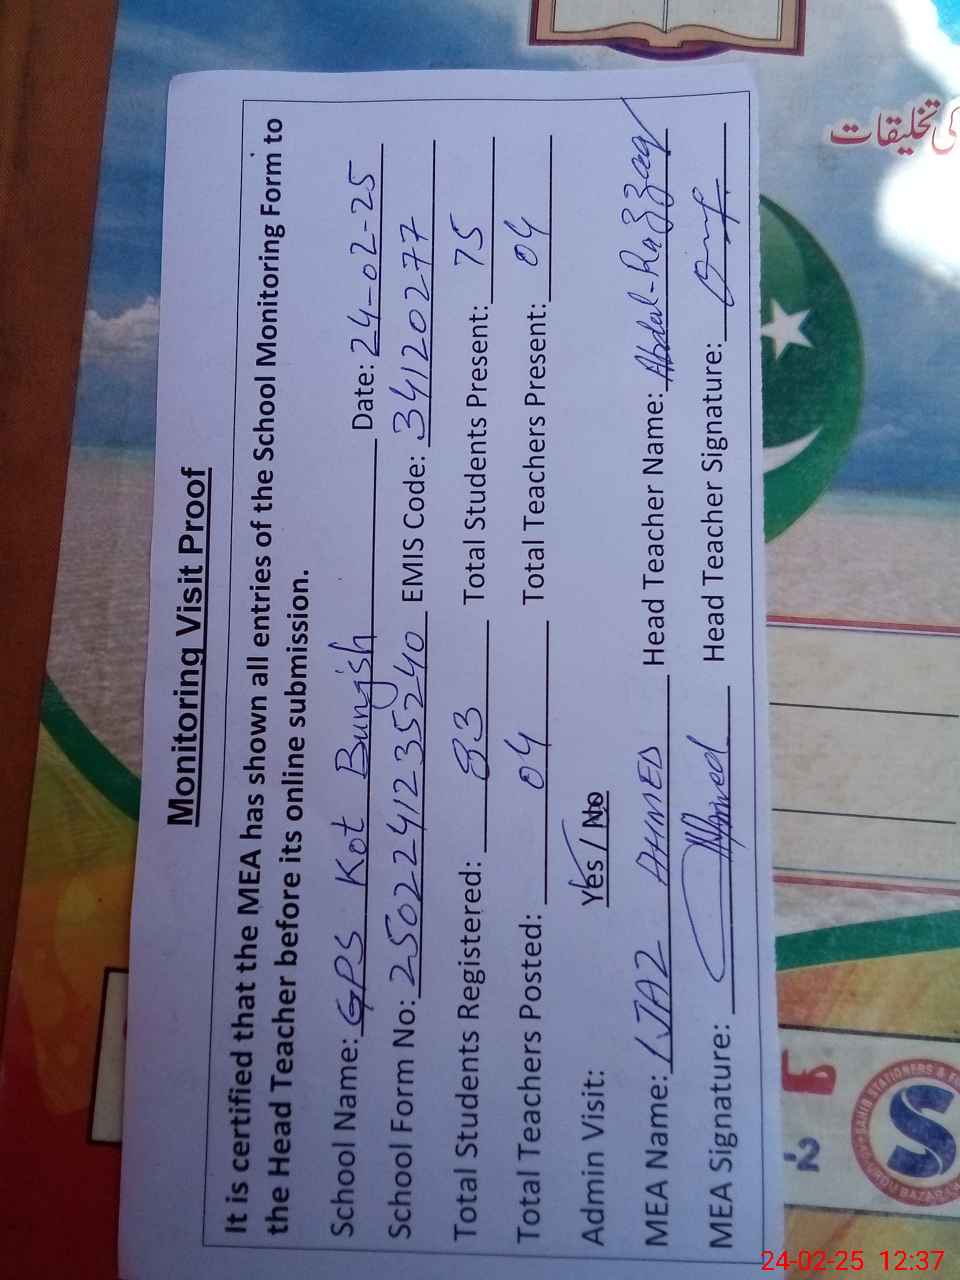 Monitoring Visit Proof
It is certified that the MEA has shown all entries of the School Monitoring Form to
the Head Teacher before its online submission.
School Name: GPS Kot Bungish Date: 24-02-25
School Form No: 2502241235240 EMIS Code: 34120277
Total Students Registered: 83 Total Students Present: 75
Total Teachers Posted: 04 Total Teachers Present: 04
Admin Visit: Yes / No
MEA Name: IJAZ AHMED Head Teacher Name: Abdul-Razzaq
MEA Signature: Ahmed Head Teacher Signature:
کی تخلیقات
24-02-25 12:37